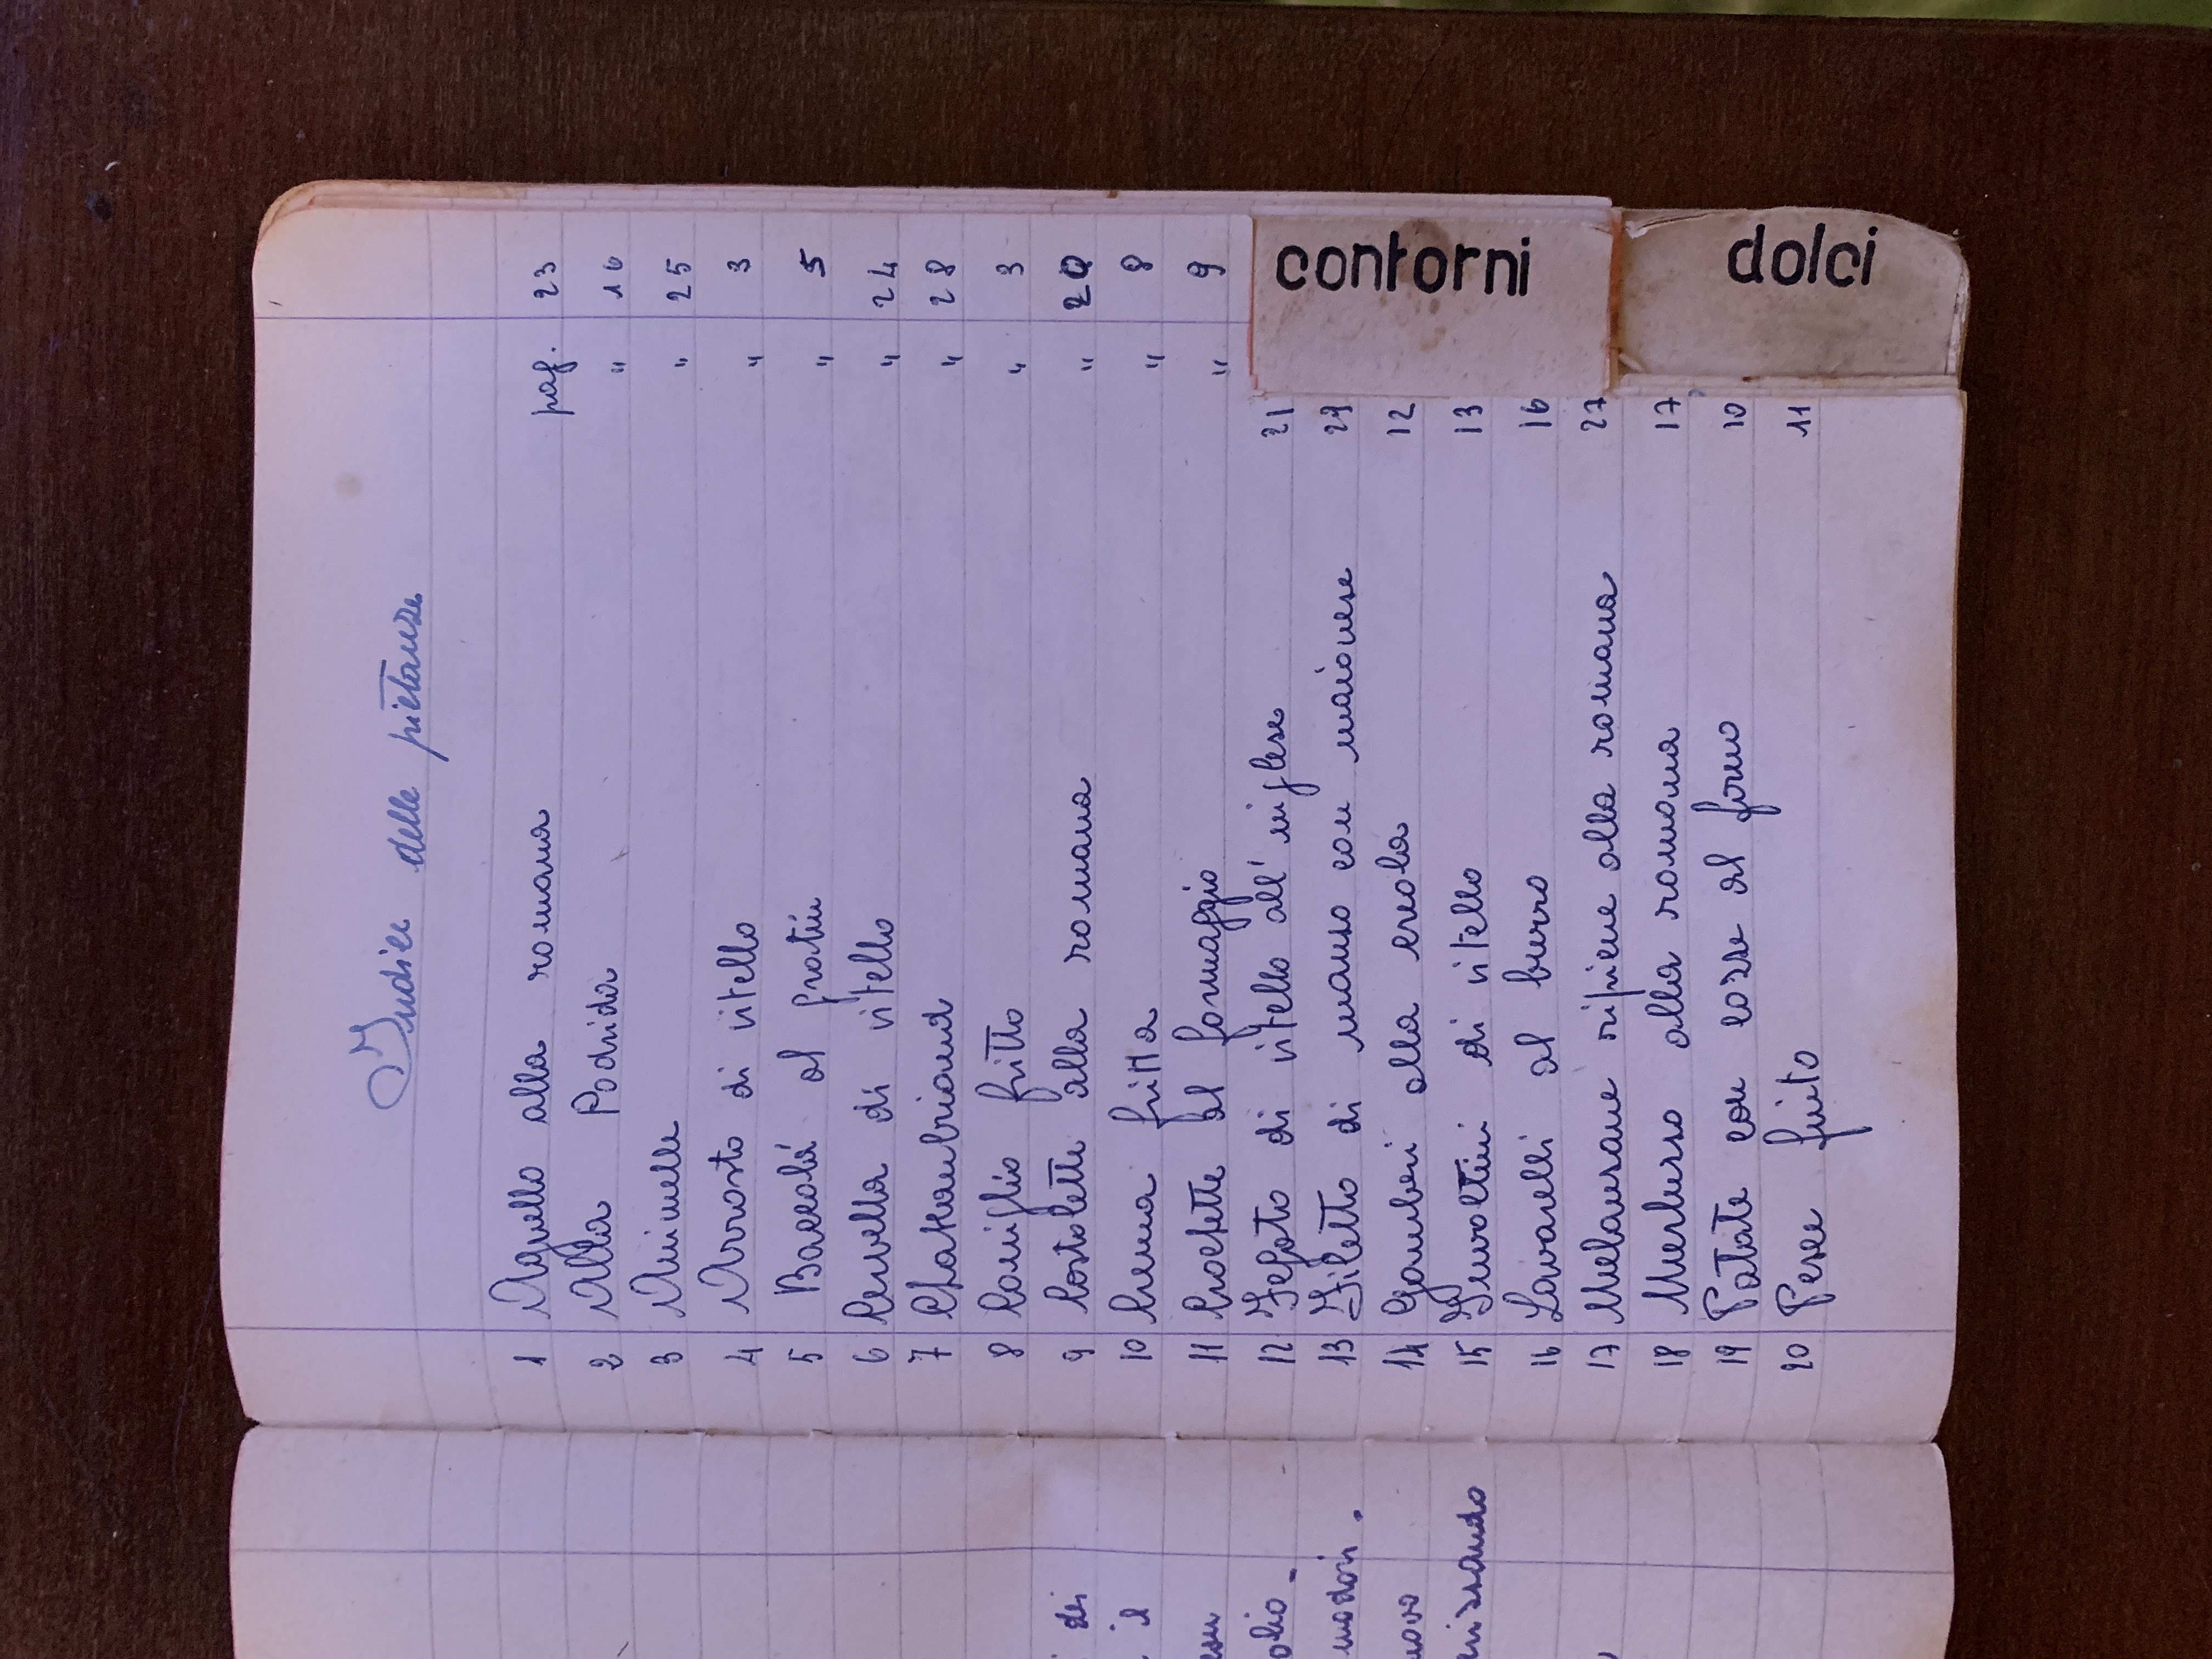 Indice delle pietanze
1 Agnello alla romana pag. 23
2 Alla Podrida " 16
3 Animelle " 25
4 Arrosto di vitello " 3
5 Baccalá al gratin " 5
6 Cervella di vitello " 24
7 Chateaubriand " 28
8 Coniglio fritto " 3
9 Costolette alla romana " 20
10 Crema fritta " 8
11 Crochette al formaggio " 9
12 Fegato di vitello all'inglese 21
13 Filetto di manzo con maionese 29
14 Gamberi alla creola 12
15 Involtini di vitello 13
16 Lavarelli al burro 16
17 Melanzane ripiene alla romana 27
18 Merluzzo alla romana 17
19 Patate con cozze al forno 10
20 Pesce finto 11
contorni
dolci
dei
il
olio -